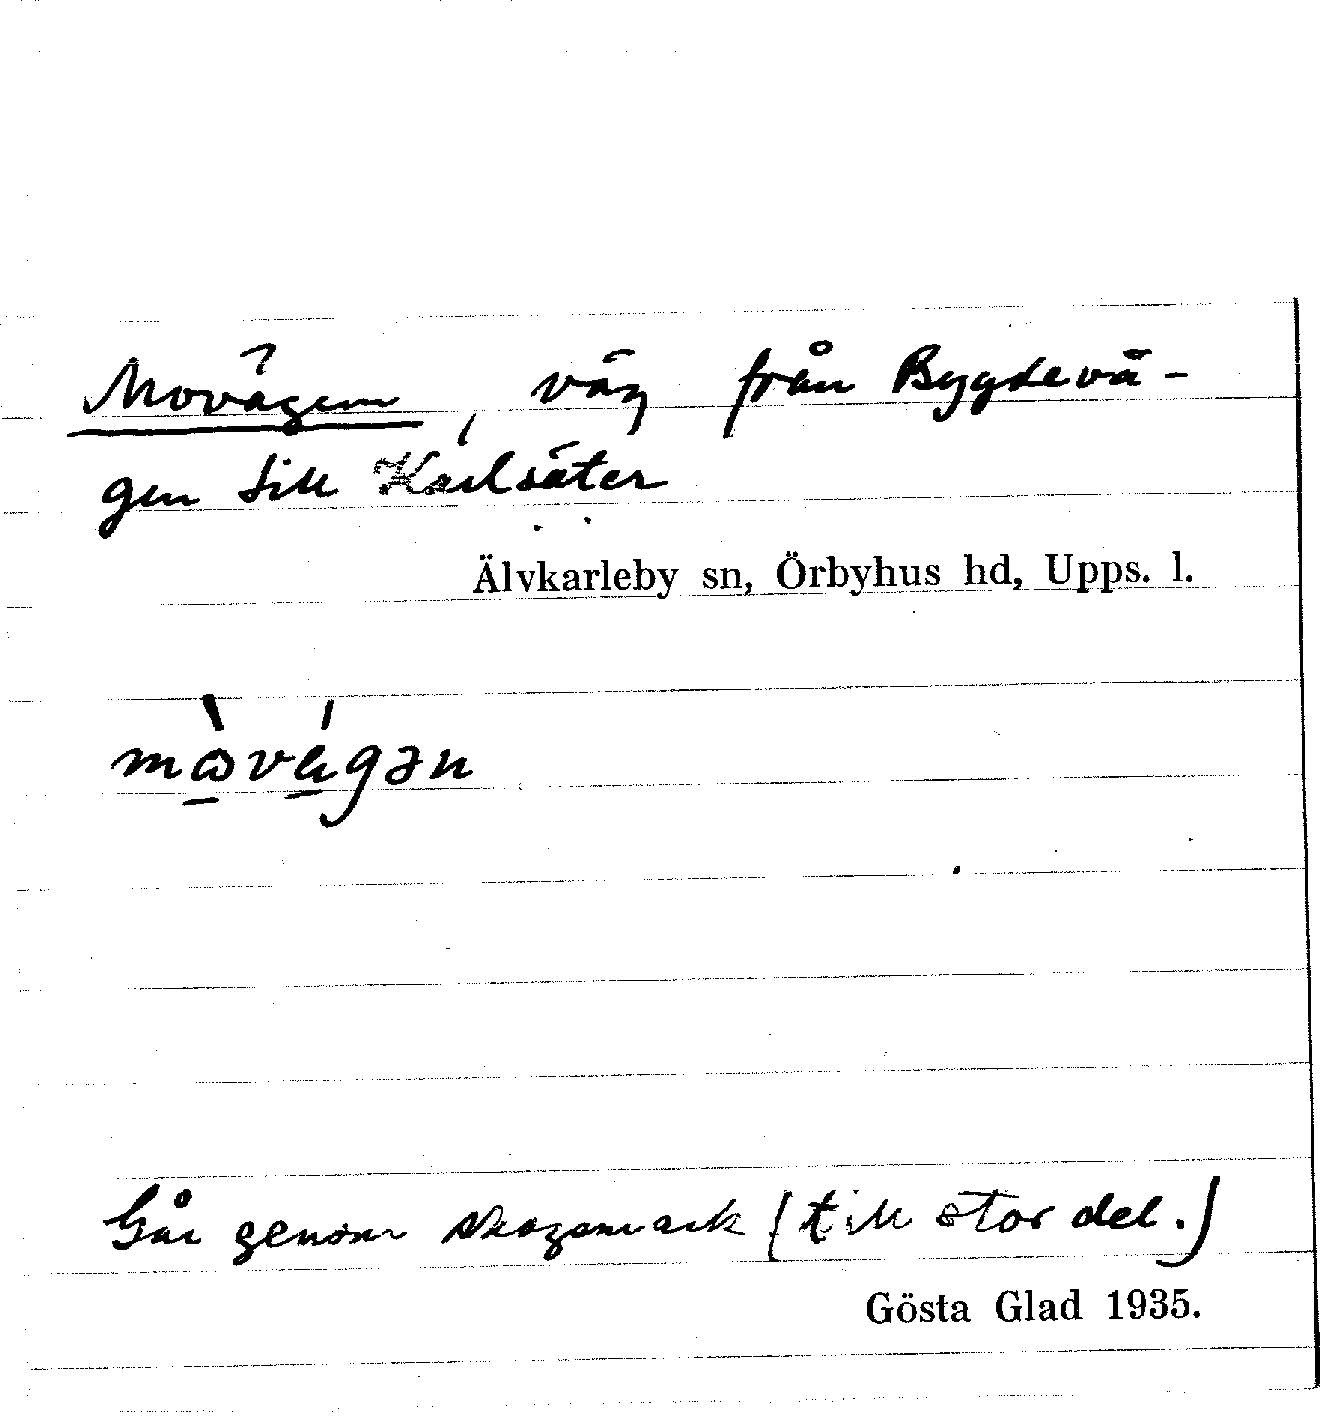 Movägen, väg från Bygdevä-
gen till Karlsäter
Älvkarleby sn, Örbyhus hd, Upps. l.
mɷ̀vágən
Går genom skogsmark (till stor del.)
Gösta Glad 1935.